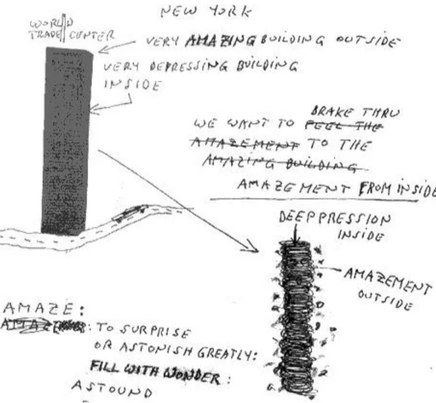 NEW YORK
WORLD
TRADE CENTER
VERY AMAZING BUILDING OUTSIDE
VERY DEPRESSING BUILDING
INSIDE
BRAKE THRU
WE WANT TO FEEL THE
AMAZEMENT TO THE
AMAZING BUILDING
AMAZEMENT FROM INSIDE
DEEPPRESSION
INSIDE
AMAZEMENT
OUTSIDE
AMAZE:
TO SURPRISE
OR ASTONISH GREATLY:
FILL WITH WONDER:
ASTOUND